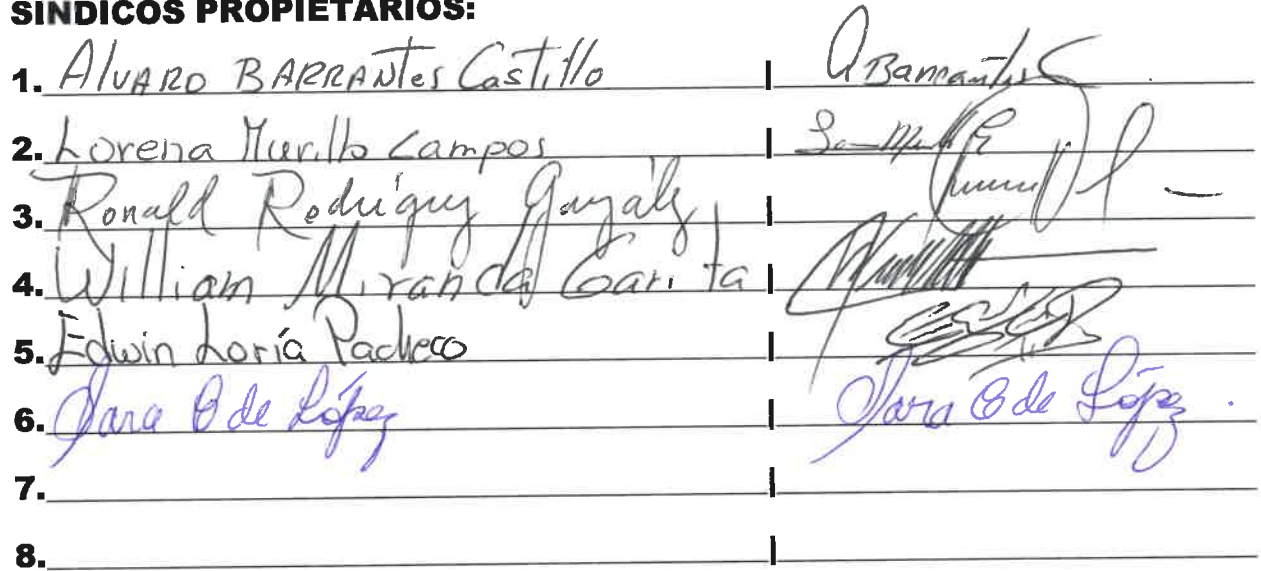 SÍNDICOS PROPIETARIOS:
1. Alvaro BARRANTES Castillo | A Barrantes C
2. Lorena Murillo Campos |
3. Ronald Rodríguez González |
4. William Miranda Garita |
5. Edwin Loría Pacheco |
6. Sara O de López | Sara O de López.
7. |
8. |